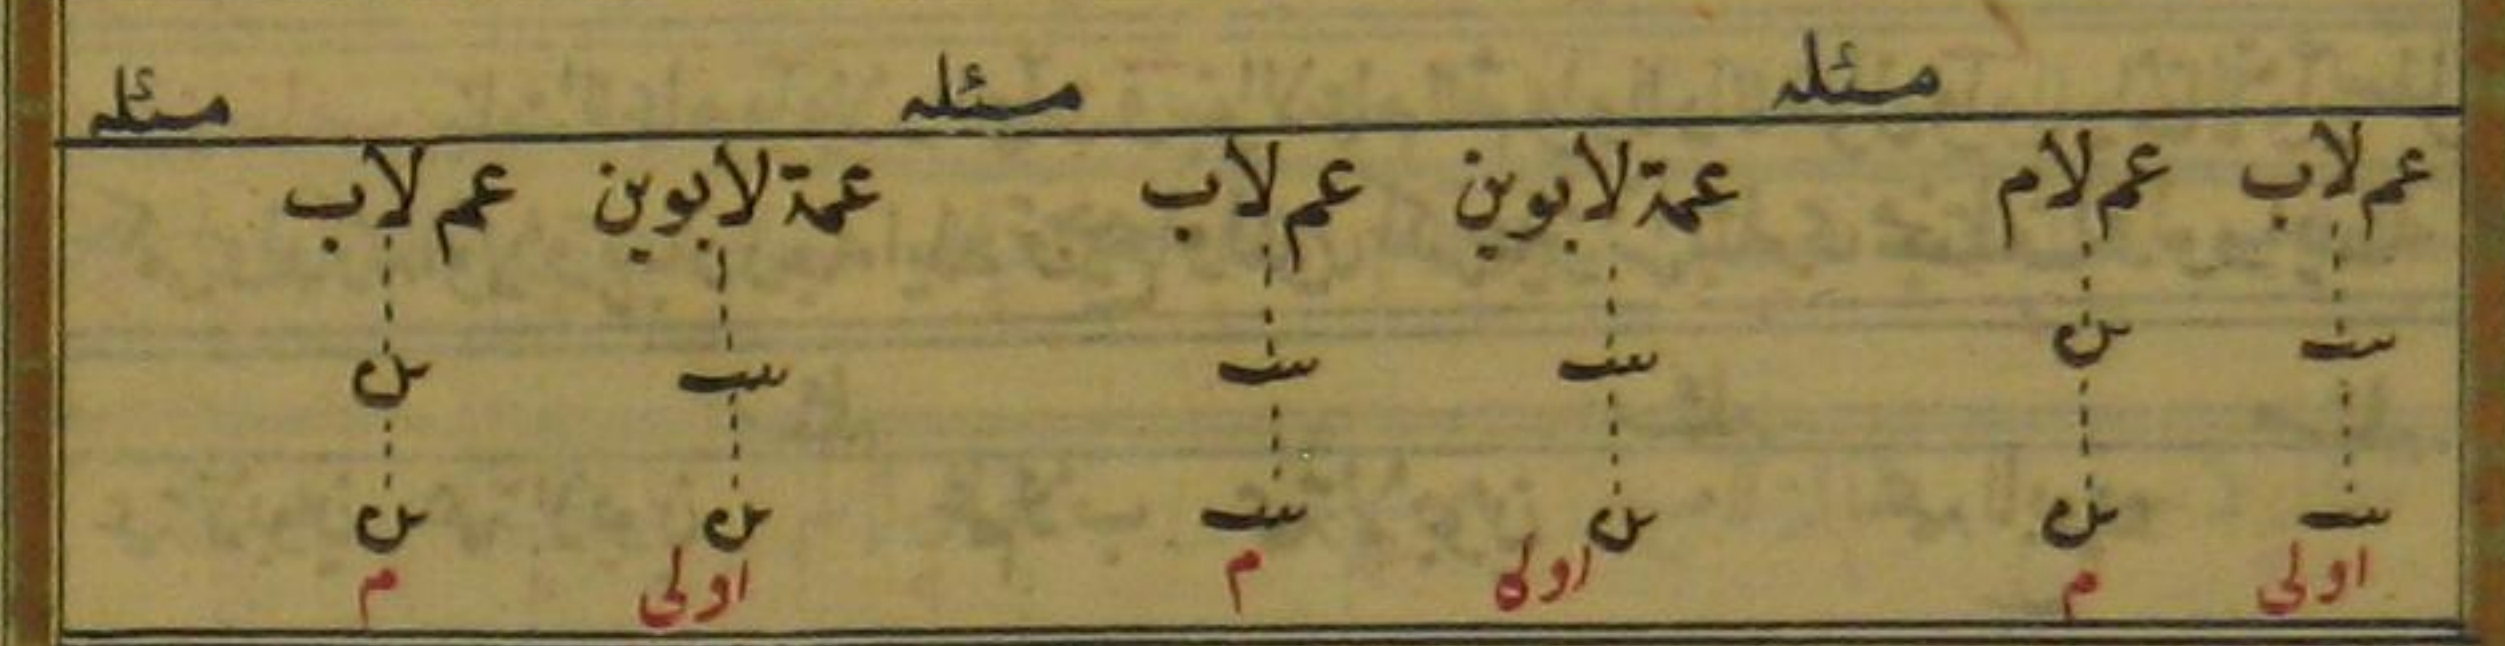 مسئله مسئله مسئله
عم لاب عم لام عمة لابوين عم لاب عمة لابوين عم لاب
بنت ابن بنت بنت بنت ابن
بنت ابن ابن بنت ابن ابن
اولى م اولى م اولى م